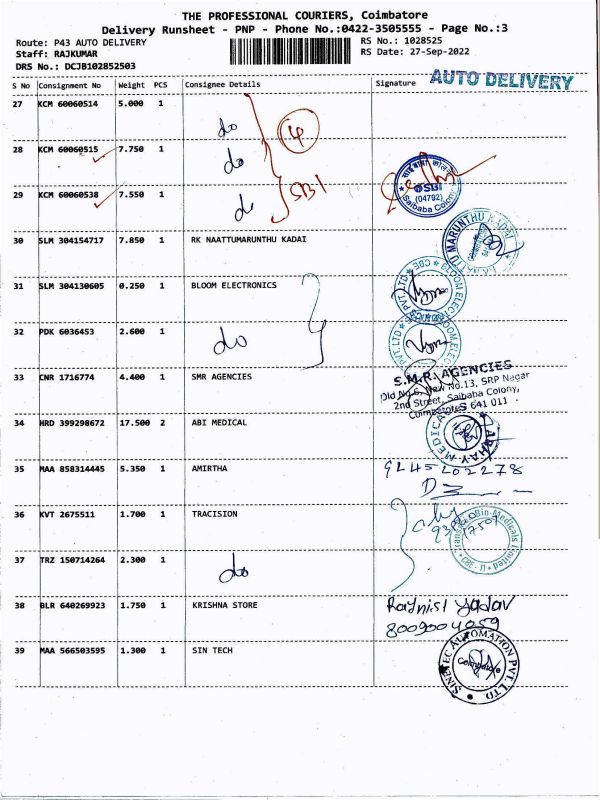 THE PROFESSIONAL COURIERS, Coimbatore
Delivery Runsheet - PNP - Phone No.:0422-3505555 - Page No.:3
Route: P43 AUTO DELIVERY
RS No.: 1028525
Staff: RAJKUMAR
RS Date: 27-Sep-2022
DRS No.: DCJB102852503
AUTO DELIVERY
S No Consignment No Weight PCS Consignee Details Signature
27 KCM 60060514 5.000 1
do
4
28 KCM 60060515 7.750 1
do
SBI
(04792)
Saibaba Colony
29 KCM 60060538 7.550 1
do SBI
30 SLM 304154717 7.850 1 RK NAATTUMARUNTHU KADAI
31 SLM 304130605 0.250 1 BLOOM ELECTRONICS
32 PDK 6036453 2.600 1
do
33 CNR 1716774 4.400 1 SMR AGENCIES
S.M.R. AGENCIES
Old No.6, New No.13, SRP Nagar
2nd Street, Saibaba Colony,
Coimbatore 641 011
34 HRD 399298672 17.500 2 ABI MEDICAL
35 MAA 858314445 5.350 1 AMIRTHA
9245202278
36 KVT 2675511 1.700 1 TRACISION
37 TRZ 150714264 2.300 1
do
38 BLR 640269923 1.750 1 KRISHNA STORE
Rajnish Yadav
8009004059
39 MAA 566503595 1.300 1 SIN TECH
SINETEC AUTOMATION PVT. LTD.
Coimbatore